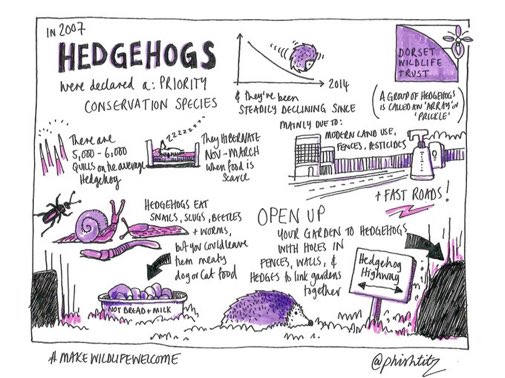 IN 2007
HEDGEHOGS
were declared a: PRIORITY
CONSERVATION SPECIES
2014
& they've been
STEADILY DECLINING SINCE
MAINLY DUE TO:
MODERN LAND USE,
FENCES, PESTICIDES
+ FAST ROADS!
DORSET
WILDLIFE
TRUST
(A GROUP OF HEDGEHOGS
IS CALLED AN 'ARRAY' OR
'PRICKLE')
There are
5,000 - 6,000
QUILLS on the average
Hedgehog
zzzzzzz
They HIBERNATE
NOV - MARCH
when FOOD IS
SCARCE
HEDGEHOGS EAT
SNAILS, SLUGS, BEETLES
+ WORMS,
but you could leave
them meaty
dog or cat food
NOT BREAD + MILK
OPEN UP
YOUR GARDEN TO HEDGEHOGS
WITH HOLES IN
FENCES, WALLS, &
HEDGES to link gardens
together
Hedgehog
Highway
#MAKEWILDLIFEWELCOME
@phishtitz